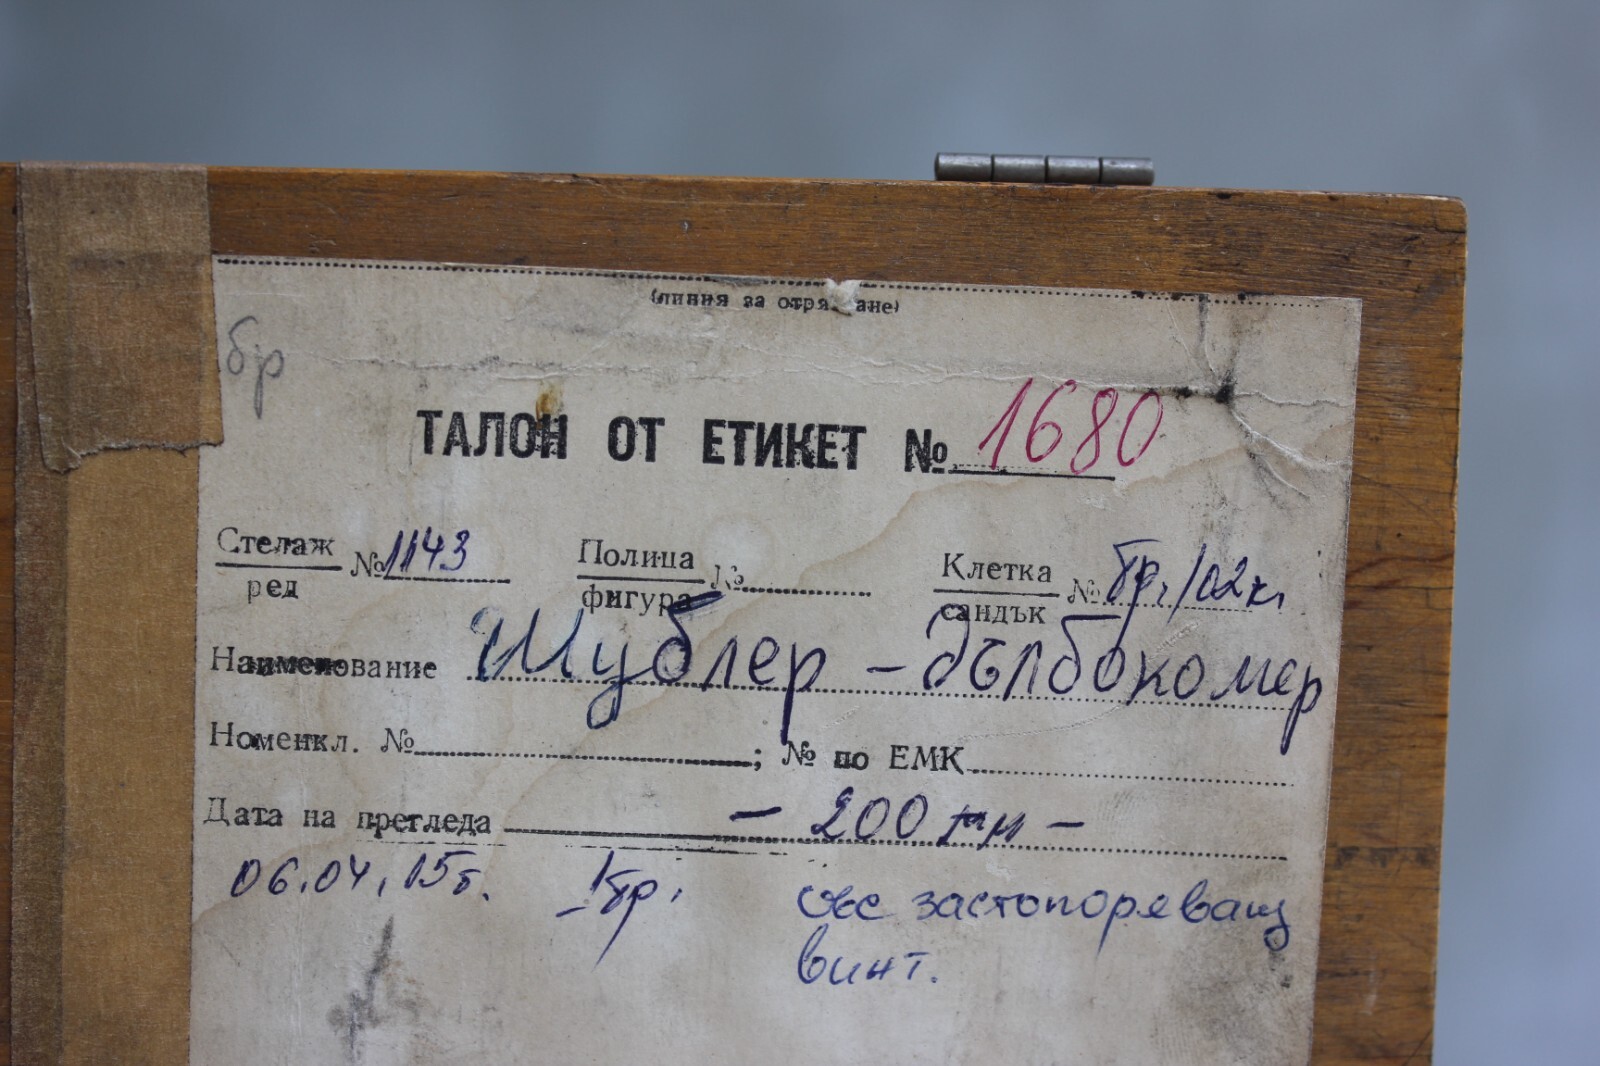 (линия за отря ане)
бр
ТАЛОН ОТ ЕТИКЕТ № 1680
Стелаж № 1143 Полица № Клетка № бр./02к.
ред фигура сандък
Наименование Шублер - дълбокомер
Номенкл. № ; № по ЕМК
Дата на прегледа - 200 мм -
06.04.15г. 1бр. със застопоряващ
винт.